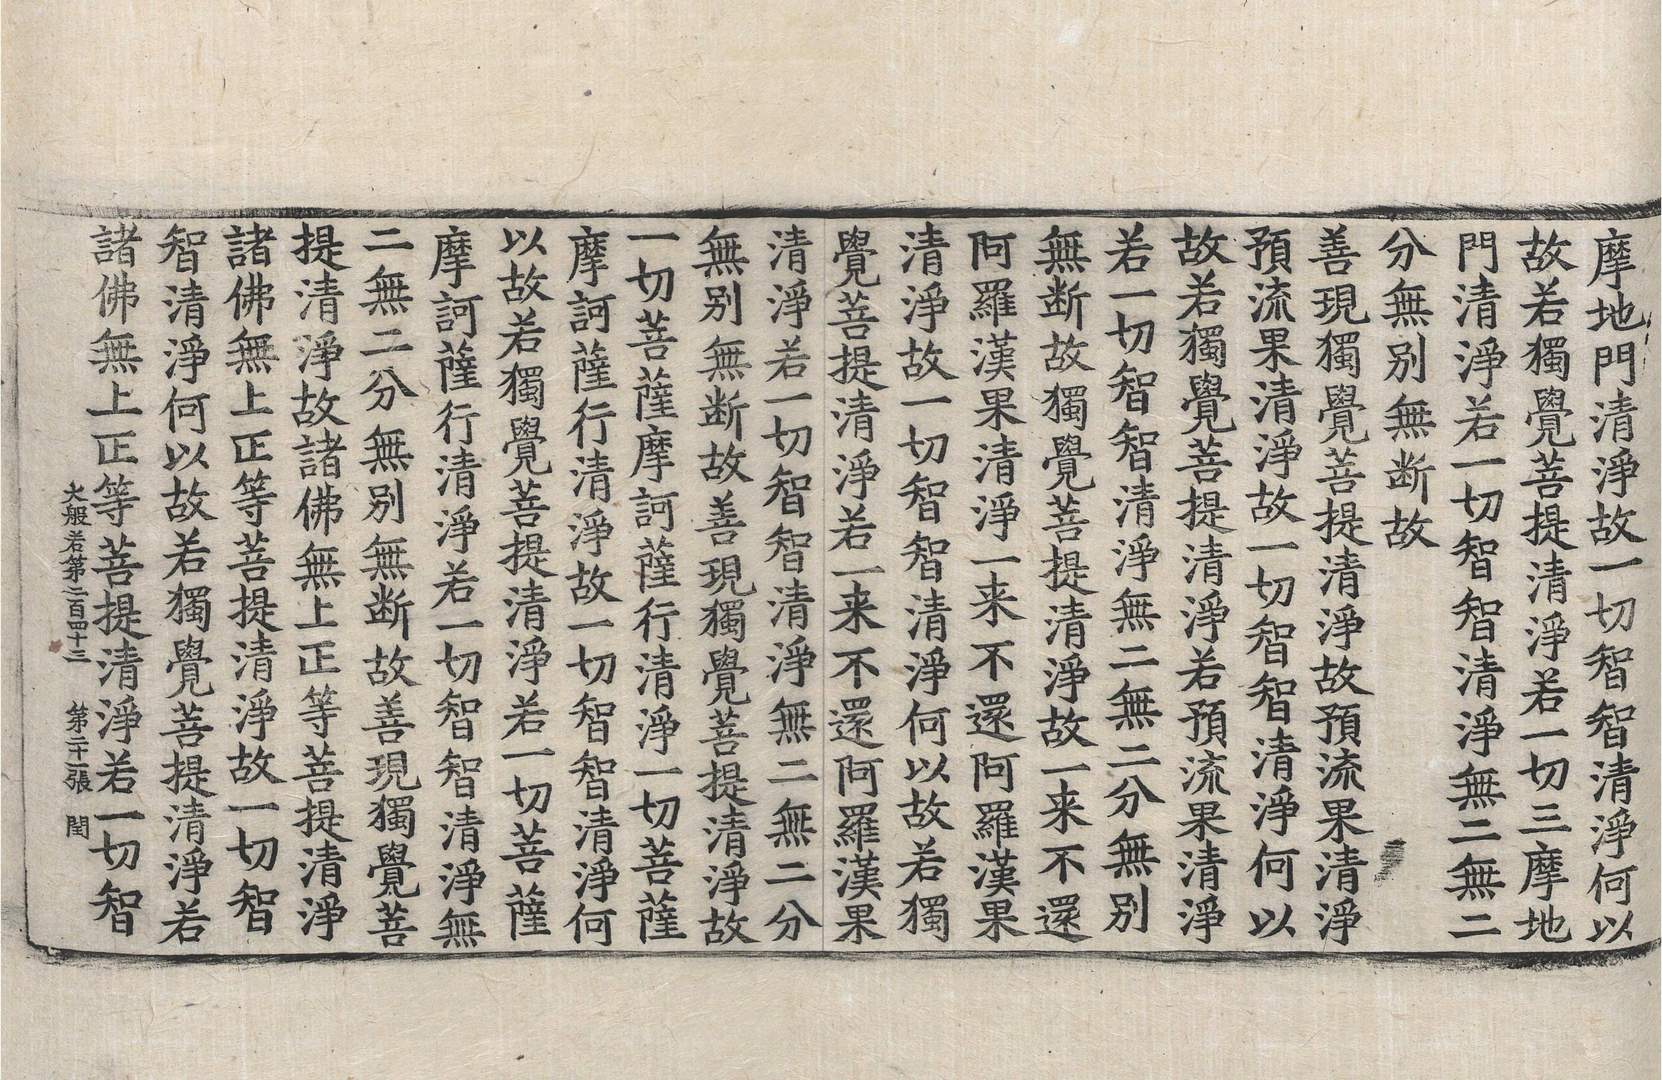 摩地門清淨故一切智智清淨何以
故若獨覺菩提清淨若一切三摩地
門清淨若一切智智清淨無二無二
分無別無断故
善現獨覺菩提清淨故預流果清淨
預流果清淨故一切智智清淨何以
故若獨覺菩提清淨若預流果清淨
若一切智智清淨無二無二分無別
無断故獨覺菩提清淨故一来不還
阿羅漢果清淨一来不還阿羅漢果
清淨故一切智智清淨何以故若獨
覺菩提清淨若一来不還阿羅漢果
清淨若一切智智清淨無二無二分
無別無断故善現獨覺菩提清淨故
一切菩薩摩訶薩行清淨一切菩薩
摩訶薩行清淨故一切智智清淨何
以故若獨覺菩提清淨若一切菩薩
摩訶薩行清淨若一切智智清淨無
二無二分無別無断故善現獨覺菩
提清淨故諸佛無上正等菩提清淨
諸佛無上正等菩提清淨故一切智
智清淨何以故若獨覺菩提清淨若
諸佛無上正等菩提清淨若一切智
大般若第二百四十三 第二十二張 閏